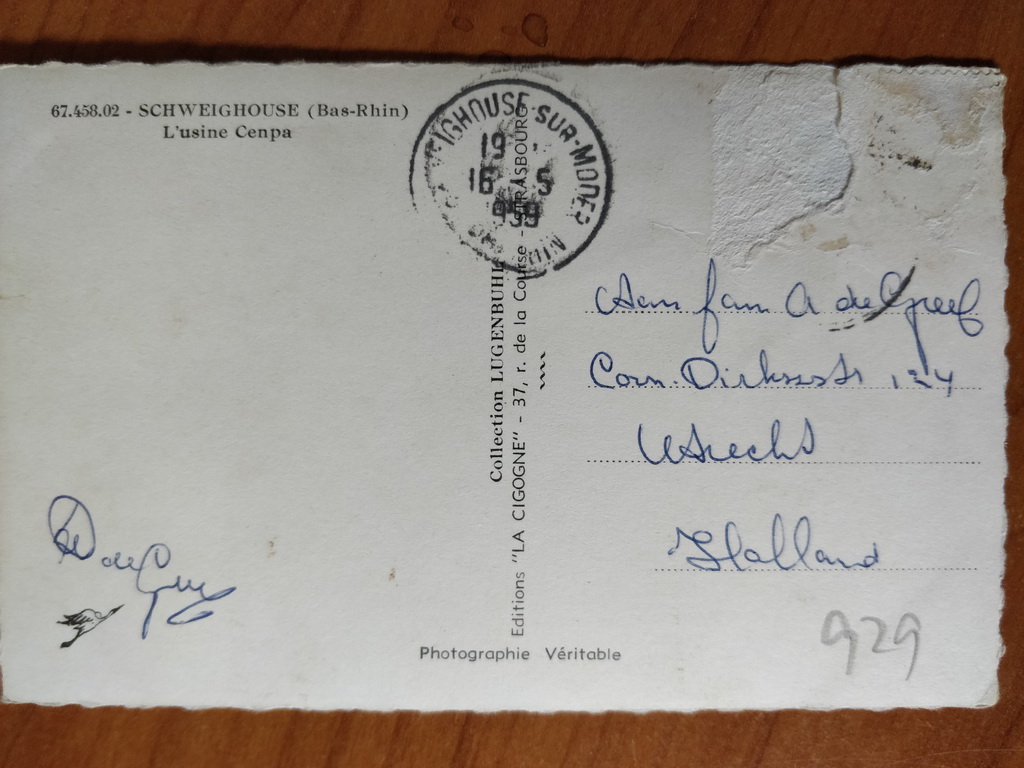 67.458.02 - SCHWEIGHOUSE (Bas-Rhin)
L'usine Cenpa
IGHOUSE-SUR-MODER
19
16 5
959
RHIN
Collection LUGENBUHL
Editions "LA CIGOGNE" - 37, r. de la Course - STRASBOURG
Aan fam A de Greef
Corn. Dirkszstr 124
Utrecht
Holland
de Greef
929
Photographie Véritable